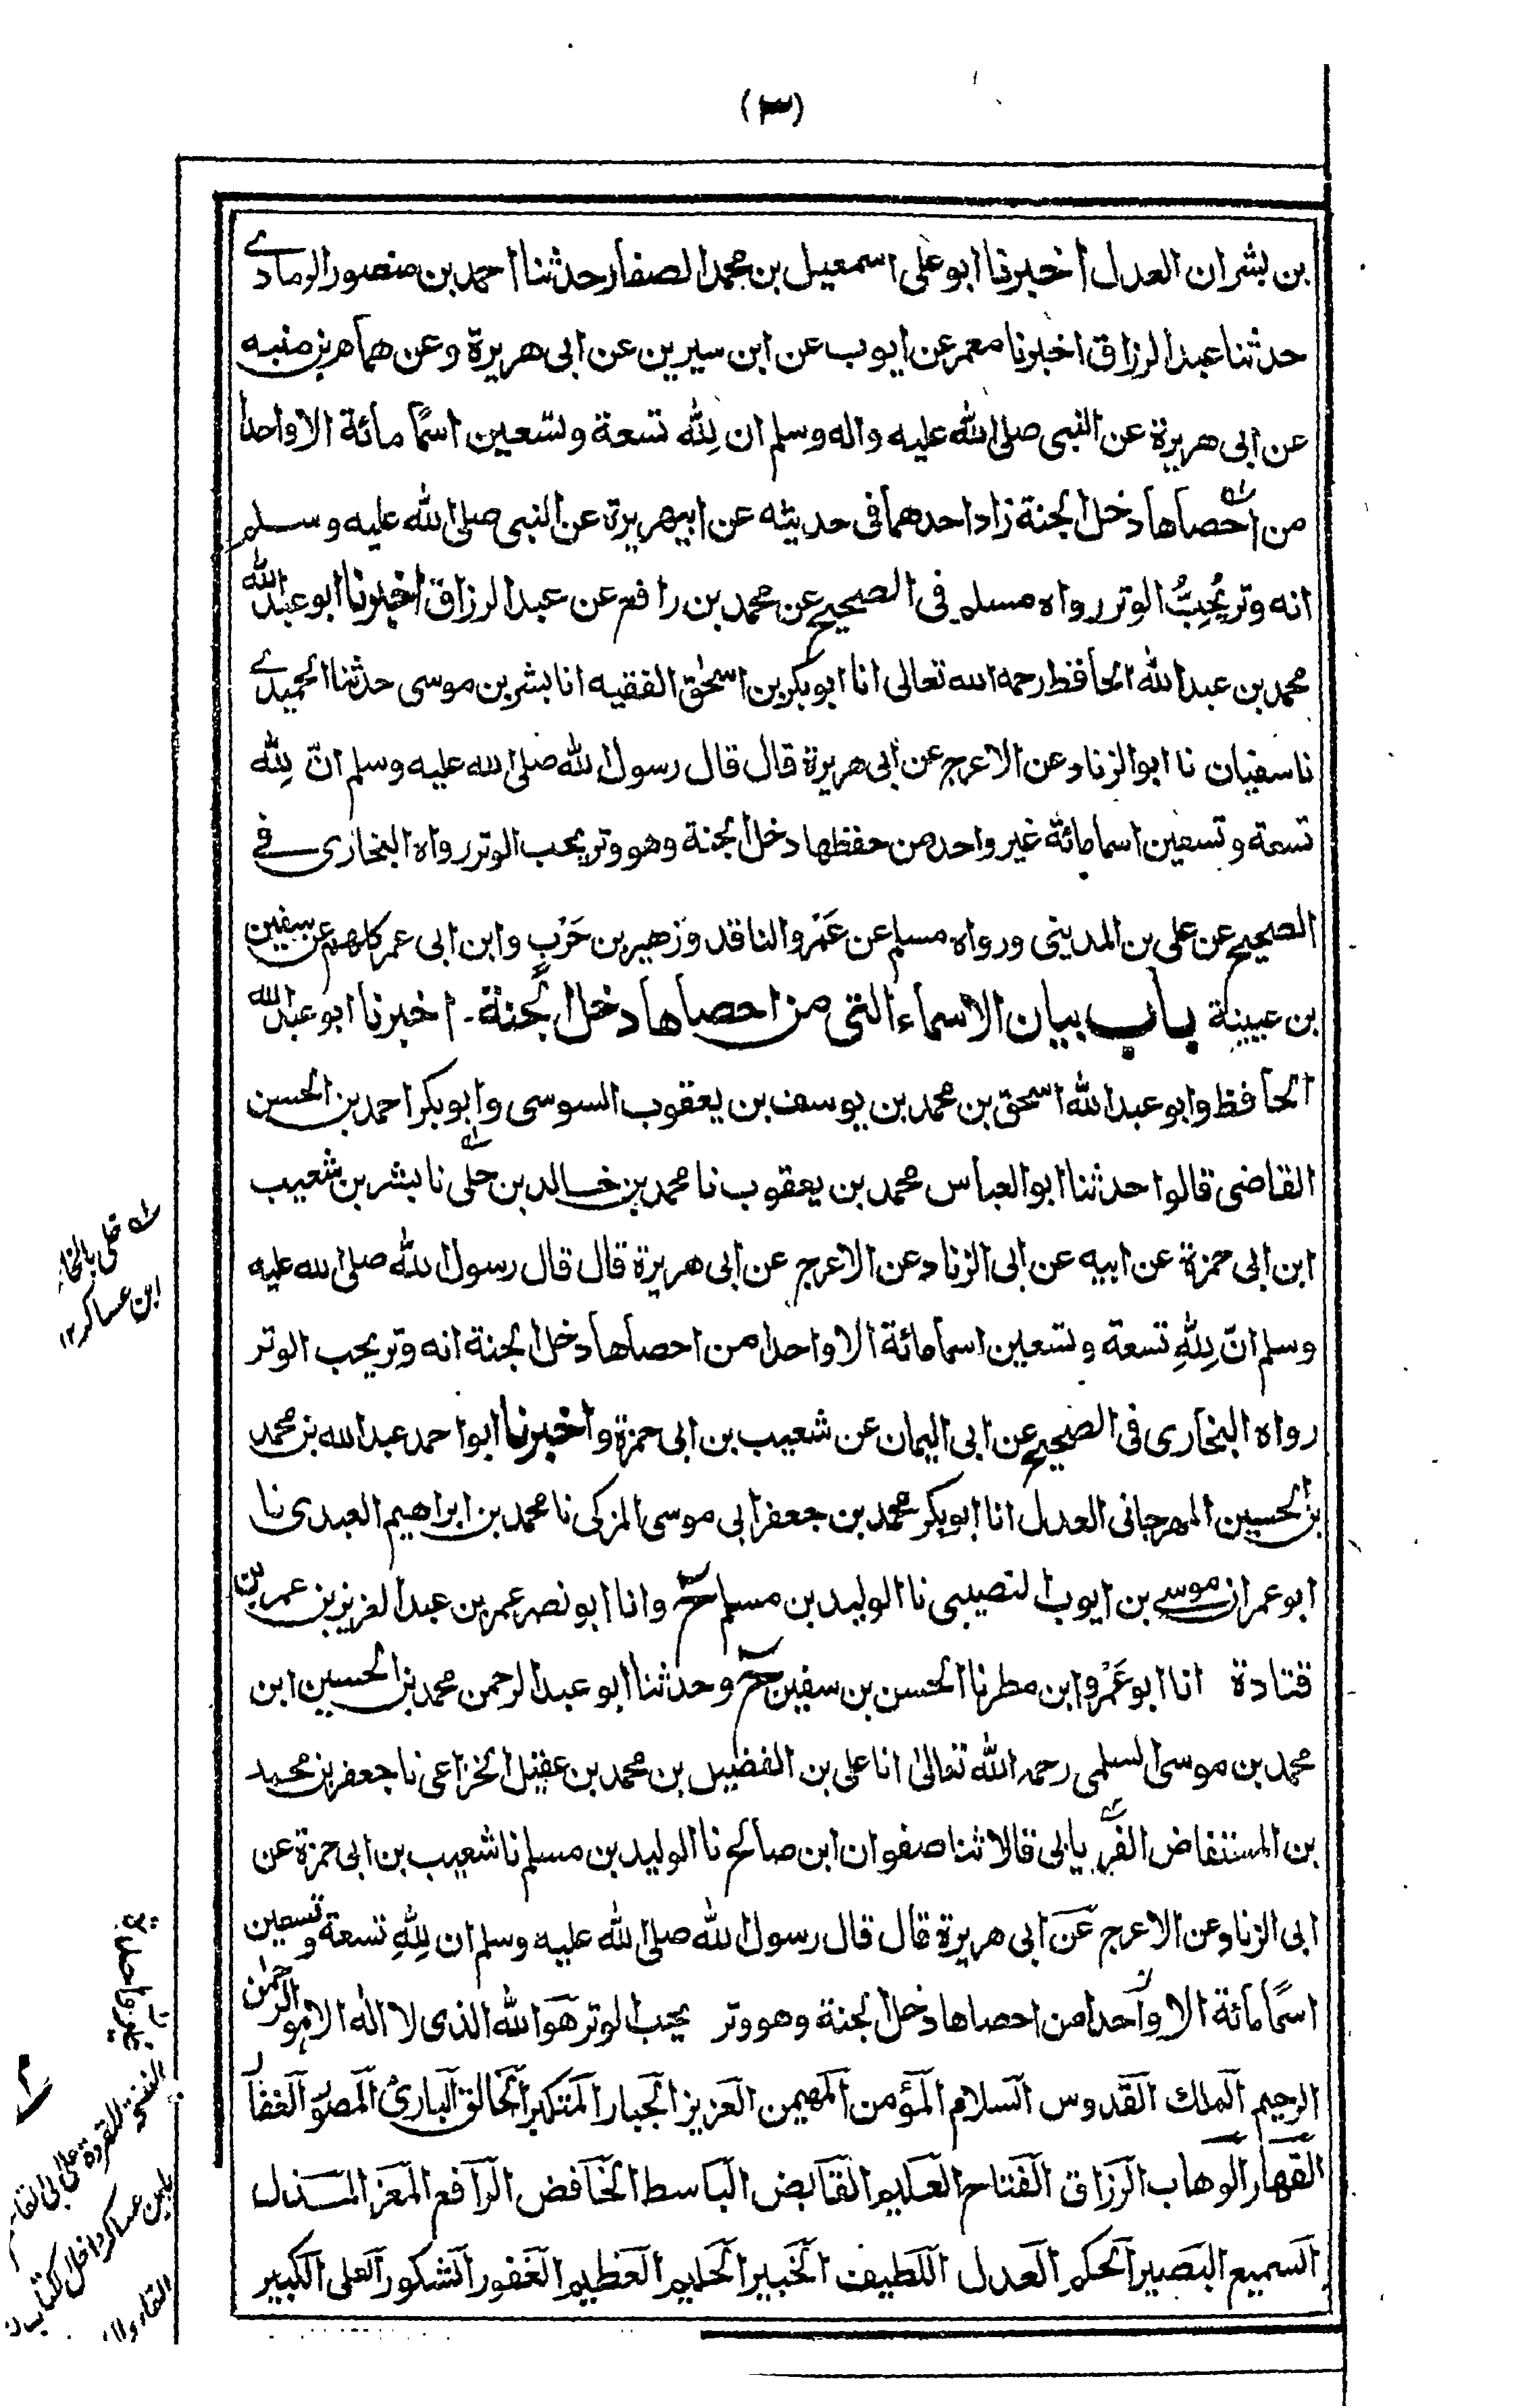 (٣)
بن بشران العدل اخبرنا ابو على اسمعيل بن محمد الصفار حدثنا احمد بن منصور الرمادے
حدثنا عبد الرزاق اخبرنا معمر عن ايوب عن ابن سيرين عن ابى هريرة وعن همام بن منبه
عن ابى هريرة عن النبى صلى الله عليه واله وسلم ان لله تسعة وتسعين اسمًا مائة الا واحدا
من احصاها دخل الجنة زاد احدهما فى حديثه عن ابيهريرة عن النبى صلى الله عليه وسلم
انه وتر يُحِبُّ الوتر رواه مسلم فى الصحيح عن محمد بن رافع عن عبد الرزاق اخبرنا ابو عبد الله
محمد بن عبد الله الحافظ رحمه الله تعالى انا ابو بكر بن اسحٰق الفقيه انا بشر بن موسى حدثنا الحميدے
نا سفيان نا ابو الزناد عن الاعرج عن ابى هريرة قال قال رسول الله صلى الله عليه وسلم انّ لِلّٰه
تسعة وتسعين اسما مائة غير واحد من حفظها دخل الجنة وهو وتر يحب الوتر رواه البخارى فے
الصحيح عن على بن المدينى ورواه مسلم عن عَمْرو الناقد وزهير بن حَرْب وابن ابى عمر كلهم عن سفين
بن عيينة باب بيان الاسماء التى من احصاها دخل الجنة - اخبرنا ابو عبد الله
الحافظ وابو عبد الله اسحق بن محمد بن يوسف بن يعقوب السوسى وابو بكر احمد بن الحسن
القاضى قالوا حدثنا ابو العباس محمد بن يعقوب نا محمد بن خالد بن حلى نا بشر بن شعيب
ابن ابى حمزة عن ابيه عن ابى الزناد عن الاعرج عن ابى هريرة قال قال رسول الله صلى الله عليه
وسلم انّ لِلّٰهِ تسعة وتسعين اسما مائة الا واحدا من احصاها دخل الجنة انه وتر يحب الوتر
رواه البخارى فى الصحيح عن ابى اليمان عن شعيب بن ابى حمزة واخبرنا ابو احمد عبد الله بن محمد
بن الحسين المهرجانى العدل انا ابو بكر محمد بن جعفر ابى موسى المزكى نا محمد بن ابراهيم العبدى نا
ابو عمران موسے بن ايوب النصيبى نا الوليد بن مسلم ح وانا ابو نصر عمر بن عبد العزيز بن عمر بن
قتادة انا ابو عَمْرو ابن مطر نا الحسن بن سفين ح وحدثنا ابو عبد الرحمن محمد بن الحسين ابن
محمد بن موسى السلمى رحمه الله تعالىٰ انا على بن الفضيل بن محمد بن عقيل الخزاعى نا جعفر بن محمد
بن المستفاض الفريابى قالا ثنا صفوان ابن صالح نا الوليد بن مسلم نا شعيب بن ابى حمزة عن
ابى الزناد عن الاعرج عن ابى هريرة قال قال رسول الله صلى الله عليه وسلم ان لِلّٰهِ تسعة وتسعين
اسمًا مائة الا واحدا من احصاها دخل الجنة وهو وتر يحب الوتر هو الله الذى لا اله الا هو الرحمٰن
الرحيم الملك القدوس السلام المؤمن المهيمن العزيز الجبار المتكبر الخالق البارئ المصوّر الغفار
القهار الوهاب الرزاق الفتاح العليم القابض الباسط الخافض الرافع المعز المذل
السميع البصير الحكم العدل اللطيف الخبير الحليم العظيم الغفور الشكور العلى الكبير
خلى بالخاء
ابن عساكر ١٢
غير واحدة
النسخة المقروءة على ابى القاسم
ابن عساكر داخل الكتاب